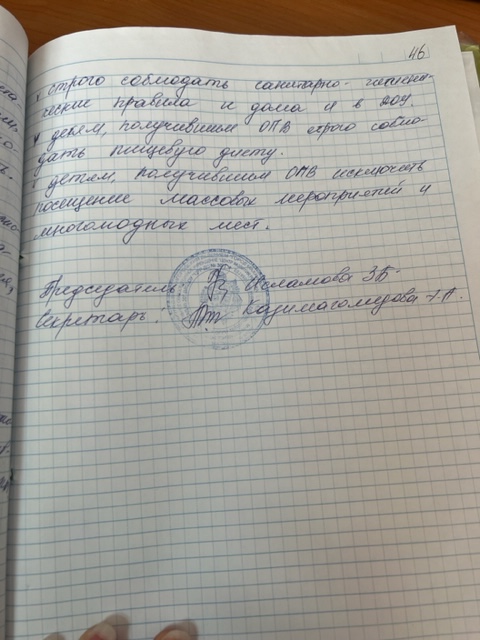 46
строго соблюдать санитарно-гигиени-
ческие правила и дома и в ДОУ.
детям, получившим ОПВ строго соблю-
дать пищевую диету.
детям, получившим ОПВ исключить
посещение массовых мероприятий и
многолюдных мест.
Председатель Исламова З.Б.
Секретарь: Казимагомедова